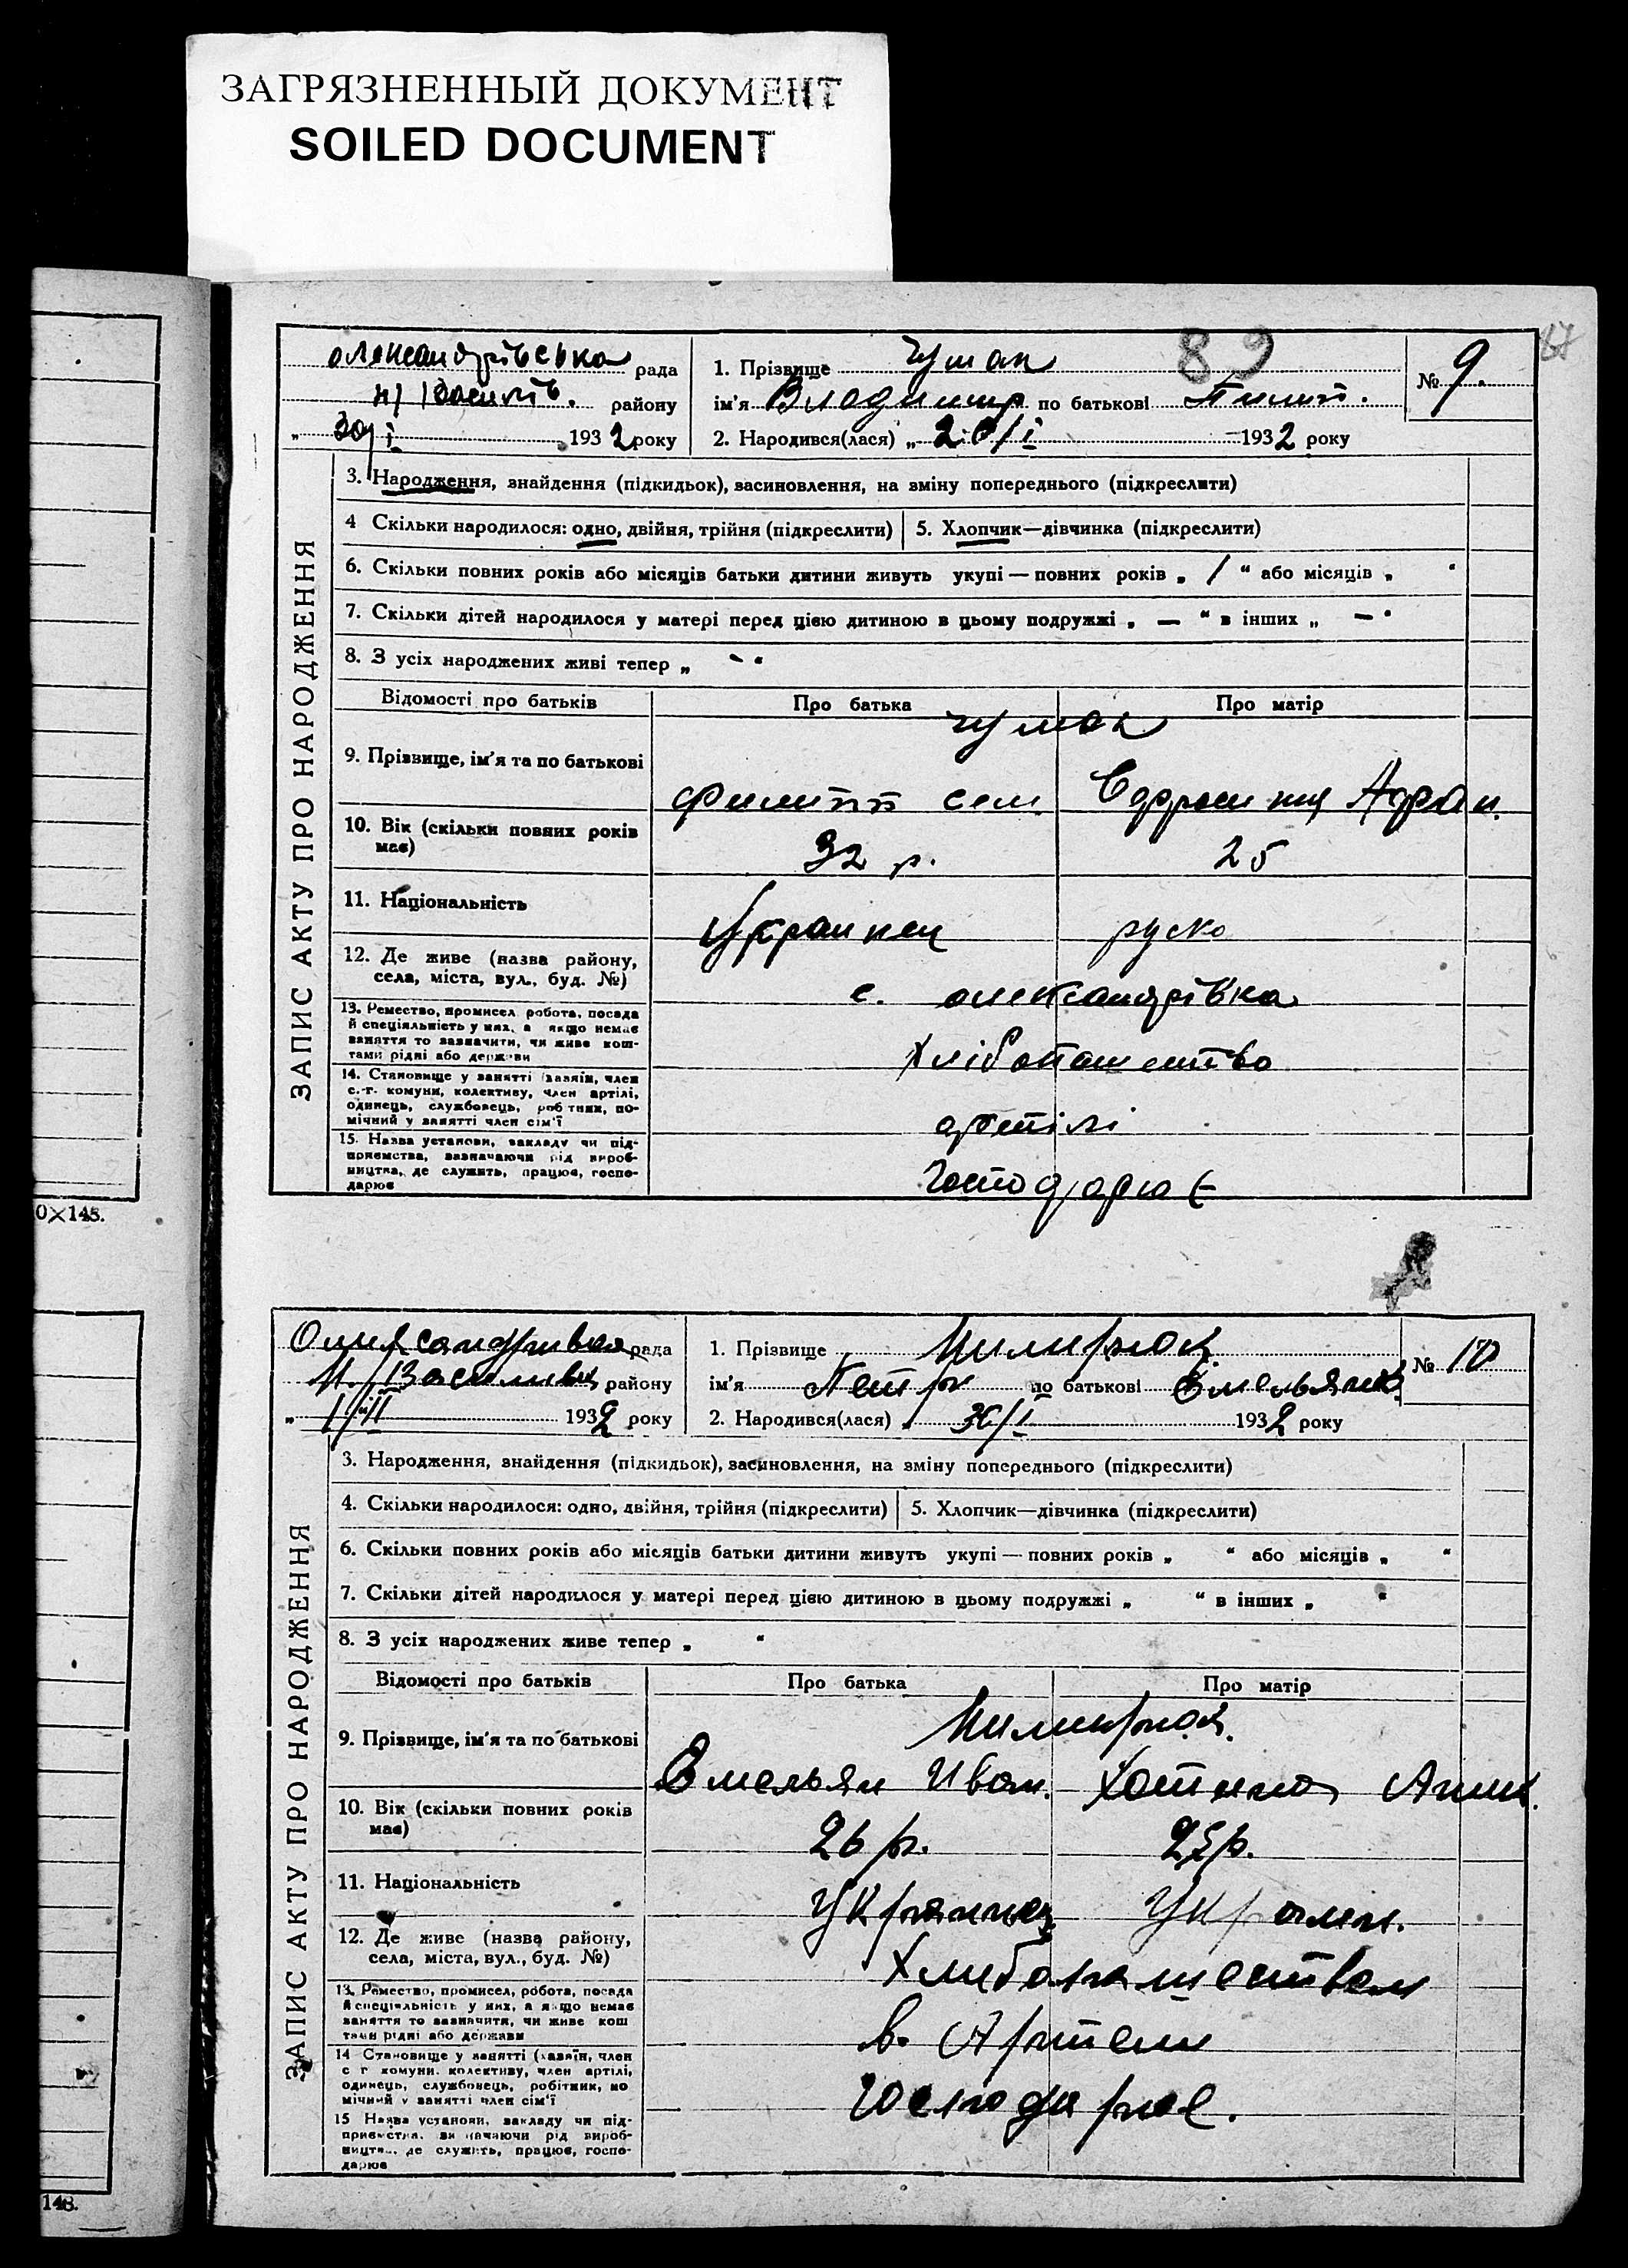 ЗАГРЯЗНЕННЫЙ ДОКУМЕНТ
SOILED DOCUMENT
87
89
олександрівська рада
району
30/I 1932 року
1. Прізвище Чумак
ім'я Владимир по батькові Пилип.
2. Народився(лася) „ 26/I 1932 року
№ 9.
ЗАПИС АКТУ ПРО НАРОДЖЕННЯ
3. Народження, знайдення (підкидьок), засиновлення, на зміну попереднього (підкреслити)
4 Скільки народилося: одно, двійня, трійня (підкреслити) 5. Хлопчик—дівчинка (підкреслити)
6. Скільки повних років або місяців батьки дитини живуть укупі — повних років „ / “ або місяців „ “
7. Скільки дітей народилося у матері перед цією дитиною в цьому подружжі „ — “ в інших „ — “
8. З усіх народжених живі тепер „ - “
Відомості про батьків Про батька Про матір
Чумак
9. Прізвище, ім'я та по батькові
Филипп Сем.
10. Вік (скільки повних років має)
32 р. 25
11. Національність
Украинец руско
12. Де живе (назва району, села, міста, вул., буд. №)
с. олександрівка
13. Ремество, промисел, робота, посада й спеціяльність у них, а якщо немає заняття то зазначити, чи живе коштами рідні або держави
Хлібопашество
14. Становище у занятті (хазяїн, член с.-г. комуни, колективу, член артілі, одинець, службовець, робітник, помічний у занятті член сім'ї
артілі
15. Назва установи, закладу чи підприємства, зазначаючи рід виробництва, де служить, працює, господарює
Господарює
0×148.
рада
Н. /Василивки району
1/II 1932 року
1. Прізвище
ім'я Петр по батькові Емельянов.
2. Народився(лася) 30/I 1932 року
№ 10
ЗАПИС АКТУ ПРО НАРОДЖЕННЯ
3. Народження, знайдення (підкидьок), засиновлення, на зміну попереднього (підкреслити)
4. Скільки народилося: одно, двійня, трійня (підкреслити) 5. Хлопчик—дівчинка (підкреслити)
6. Скільки повних років або місяців батьки дитини живуть укупі — повних років „ “ або місяців „ “
7. Скільки дітей народилося у матері перед цією дитиною в цьому подружжі „ “ в інших „ “
8. З усіх народжених живе тепер „ “
Відомості про батьків Про батька Про матір
9. Прізвище, ім'я та по батькові
Емельян Иван.
10. Вік (скільки повних років має)
26 р. 25 р.
11. Національність
Украинец Украин.
12. Де живе (назва району, села, міста, вул., буд. №)
Хлибопашеством
13. Ремество, промисел, робота, посада й спеціяльність у них, а якщо немає заняття то зазначити, чи живе коштами рідні або держави
в. Артели
14 Становище у занятті (хазяїн, член с г комуни, колективу, член артілі, одинець, службовець, робітник, помічний у занятті член сім'ї
Господарює.
15 Назва установи, закладу чи підприємства, зазначаючи рід виробництва, де служить, працює, господарює
148.